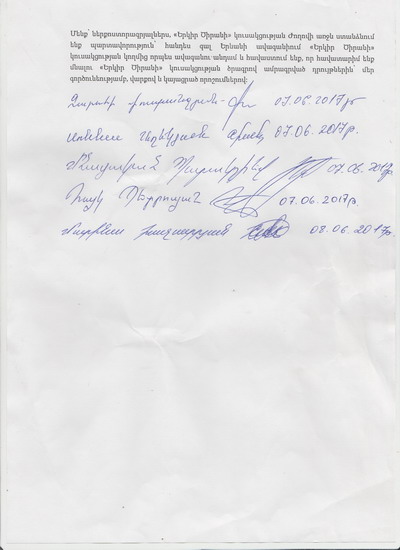 Մենք՝ ներքոստորագրյալներս, «Երկիր Ծիրանի» կուսակցության Ժողովի առջև ստանձնում
ենք պարտավորություն՝ հանդես գալ Երևանի ավագանիում «Երկիր Ծիրանի»
կուսակցության կողմից որպես ավագանու անդամ և հավաստում ենք, որ հավատարիմ ենք
մնալու «Երկիր Ծիրանի» կուսակցության ծրագրով ամրագրված դրույթներին՝ մեր
գործունեությամբ, վարքով և կայացրած որոշումներով:
Զարուհի 07.06.2017թ
07.06.2017թ.
07.06.2017թ.
Հայկ Պետրոսյան 07.06.2017թ.
Մարինա Խաչատրյան 08.06.2017թ.